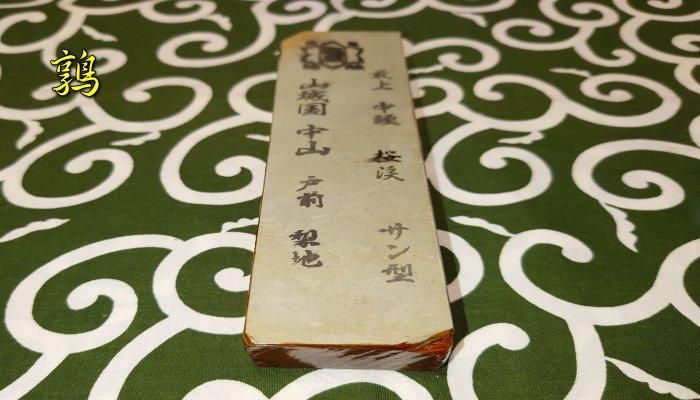 鶉
最上 中硬 桜渓 サン型
山城国 中山 戸前 梨地